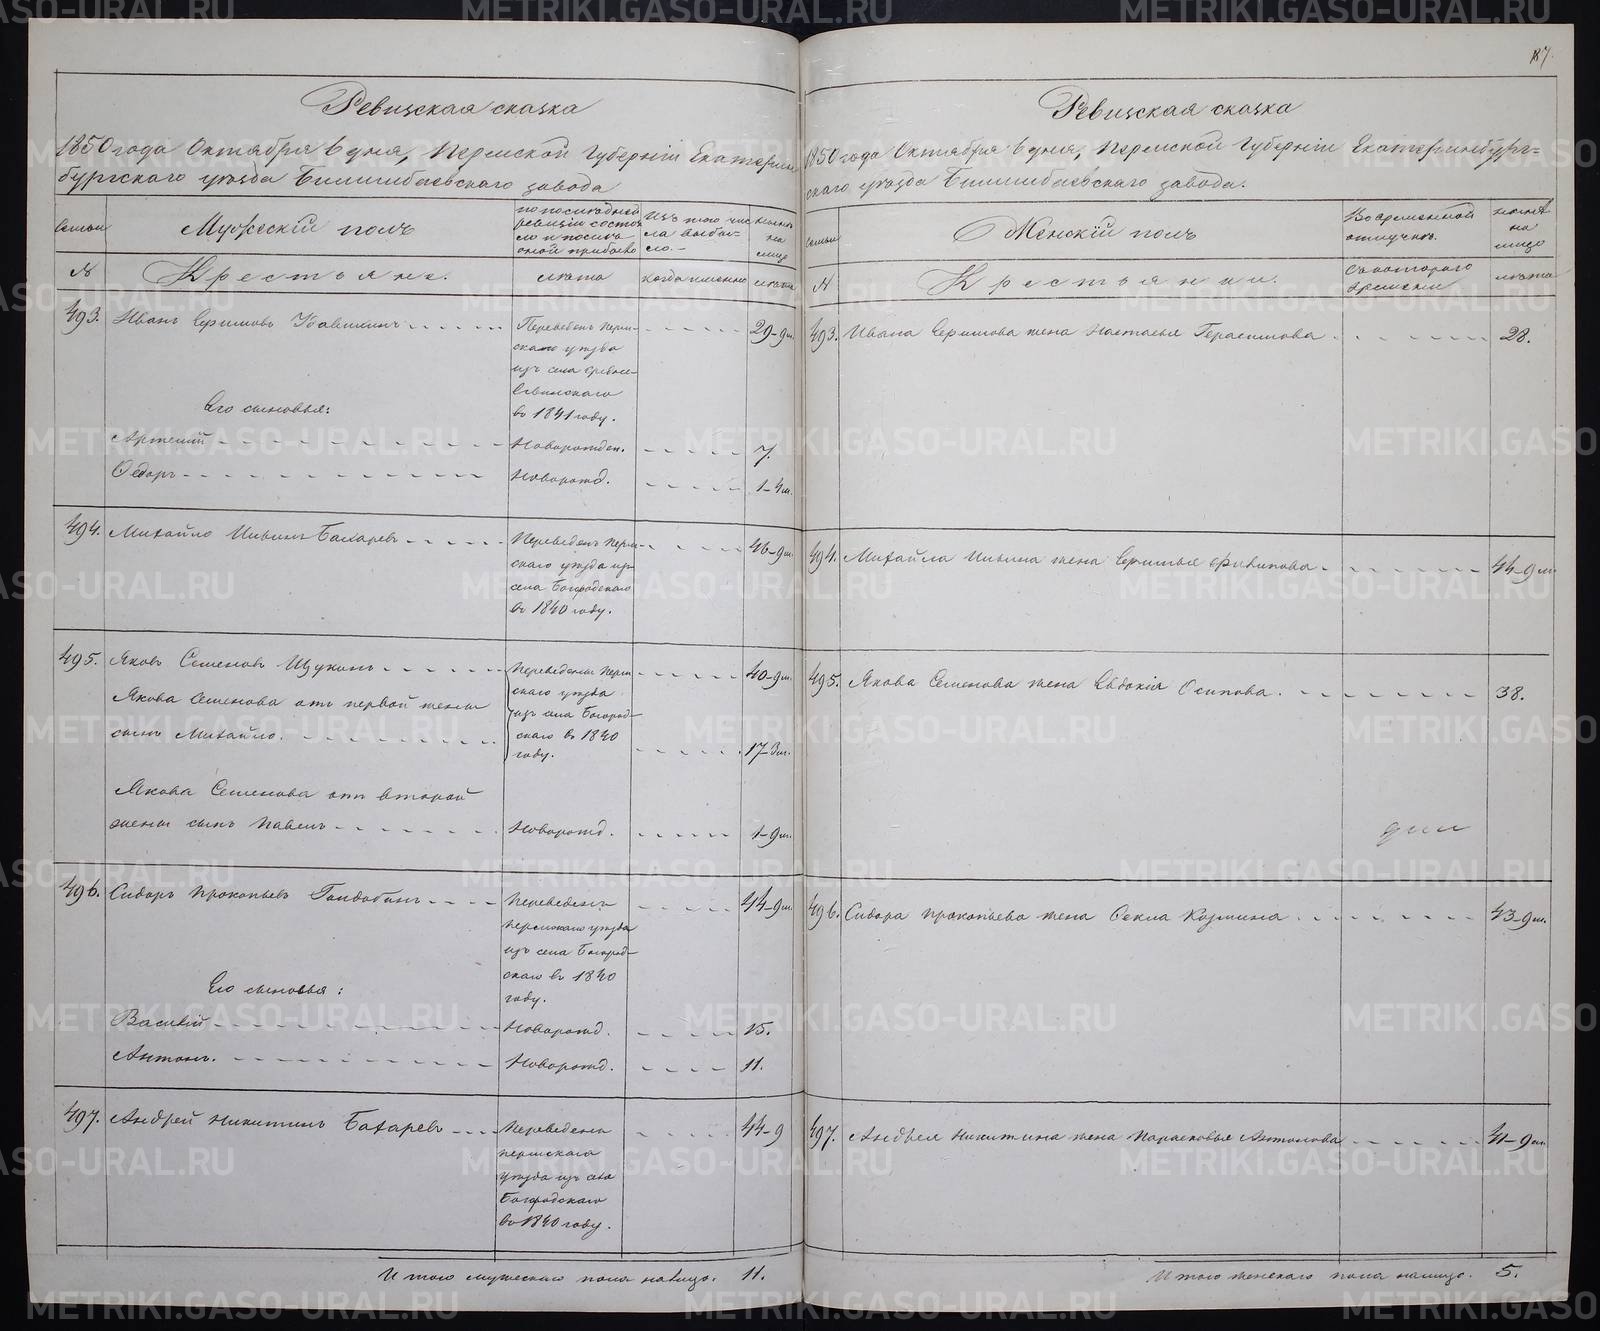 Ревизская сказка
1850 года Октября 6 дня, Пермской Губерніи Екатерин
бургскаго уѣзда Билимбаевскаго завода
Семьи
Мужескій полъ
по последней ревизіи состояло и послѣ оной прибыло
Изъ того числа выбыло.
нынѣ на лицо
№
Крестьяне.
лѣта
когда именно
лѣта
493.
Иванъ Ефимовъ
Переведенъ Перм-
29-9 м.
скаго уѣзда
изъ села
въ 1841 году.
Его сыновья:
Артемій
Новорожден.
7.
Ѳедоръ
Новорожд.
1-4 м.
494.
Михайло Ильинъ Бахаревъ
Переведенъ Перм-
46-9 м.
скаго уѣзда изъ
села Богородскаго
въ 1840 году.
495.
Яковъ Семеновъ Щукинъ
Переведены Перм-
40-9 м.
скаго уѣзда
Якова Семенова отъ первой жены
изъ села Богород-
сынъ Михайло.
скаго въ 1840
17-3 м.
году.
Якова Семенова отъ второй
жены сынъ Павелъ
Новорожд.
1-9 м.
496.
Сидоръ Прокопьевъ
Переведенъ
44-9 м.
Пермскаго уѣзда
изъ села Богород-
скаго въ 1840
году.
Его сыновья:
Василій
Новорожд.
15.
Антонъ.
Новорожд.
11.
497.
Андрей Никитинъ Бахаревъ
Переведенъ
44-9
Пермскаго
уѣзда изъ села
Богородскаго
въ 1840 году.
Итого мужескаго пола налицо. 11.
187
Ревизская сказка
1850 года Октября 6 дня, Пермской Губерніи Екатеринбург-
скаго уѣзда Билимбаевскаго завода.
Семьи
Женскій полъ
Во временной отлучкѣ.
нынѣ на лицо
№
Крестьянки.
Съ котораго времени
лѣта
493.
Ивана Ефимова жена Настасья Герасимова
28.
494.
Михайла Ильина жена Филипова
44-9 м.
495.
Якова Семенова жена Евдокія Осипова.
38.
496.
Сидора Прокопьева жена Ѳекла Козмина
43-9 м.
497.
Андрея Никитина жена Парасковья Антонова
41-9 м.
Итого женскаго пола налицо. 5.
METRIKI.GASO-URAL.RU